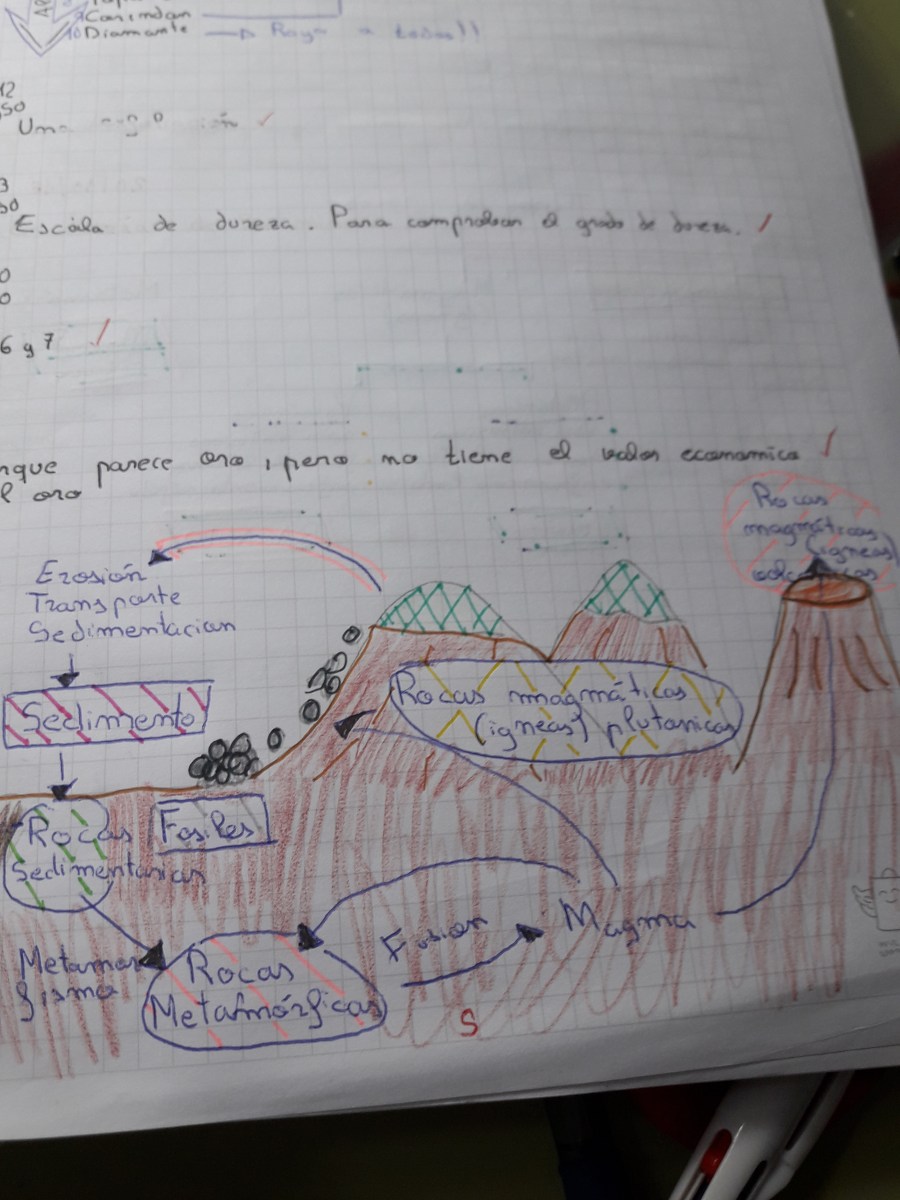 Corindon
10 Diamante → Raya a todos))
12
50
Una
3
50
Escala de dureza. Para comprobar el grado de dureza.
0
0
6 y 7
nque parece oro, pero no tiene el valor economico
l oro
Rocas
magmáticas
(igneas)
Erosión
Transporte
Sedimentacion
Sedimento
Rocas magmáticas
(igneas) plutonicas
Rocas
Sedimentarias
Fosiles
Magma
Fusion
Metamor
fismo
Rocas
Metamórficas
S